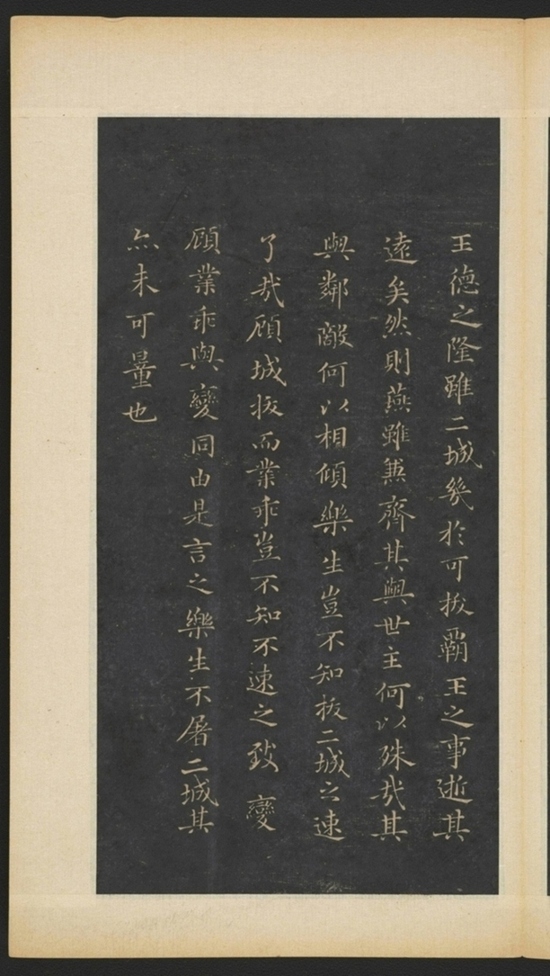 王德之隆雖二城幾於可拔霸王之事逝其
遠矣然則燕雖兼齊其與世主何以殊哉其
與鄰敵何以相傾樂生豈不知拔二城之速
了哉顧城拔而業乖豈不知不速之致變
顧業乖與變同由是言之樂生不屠二城其
亦未可量也